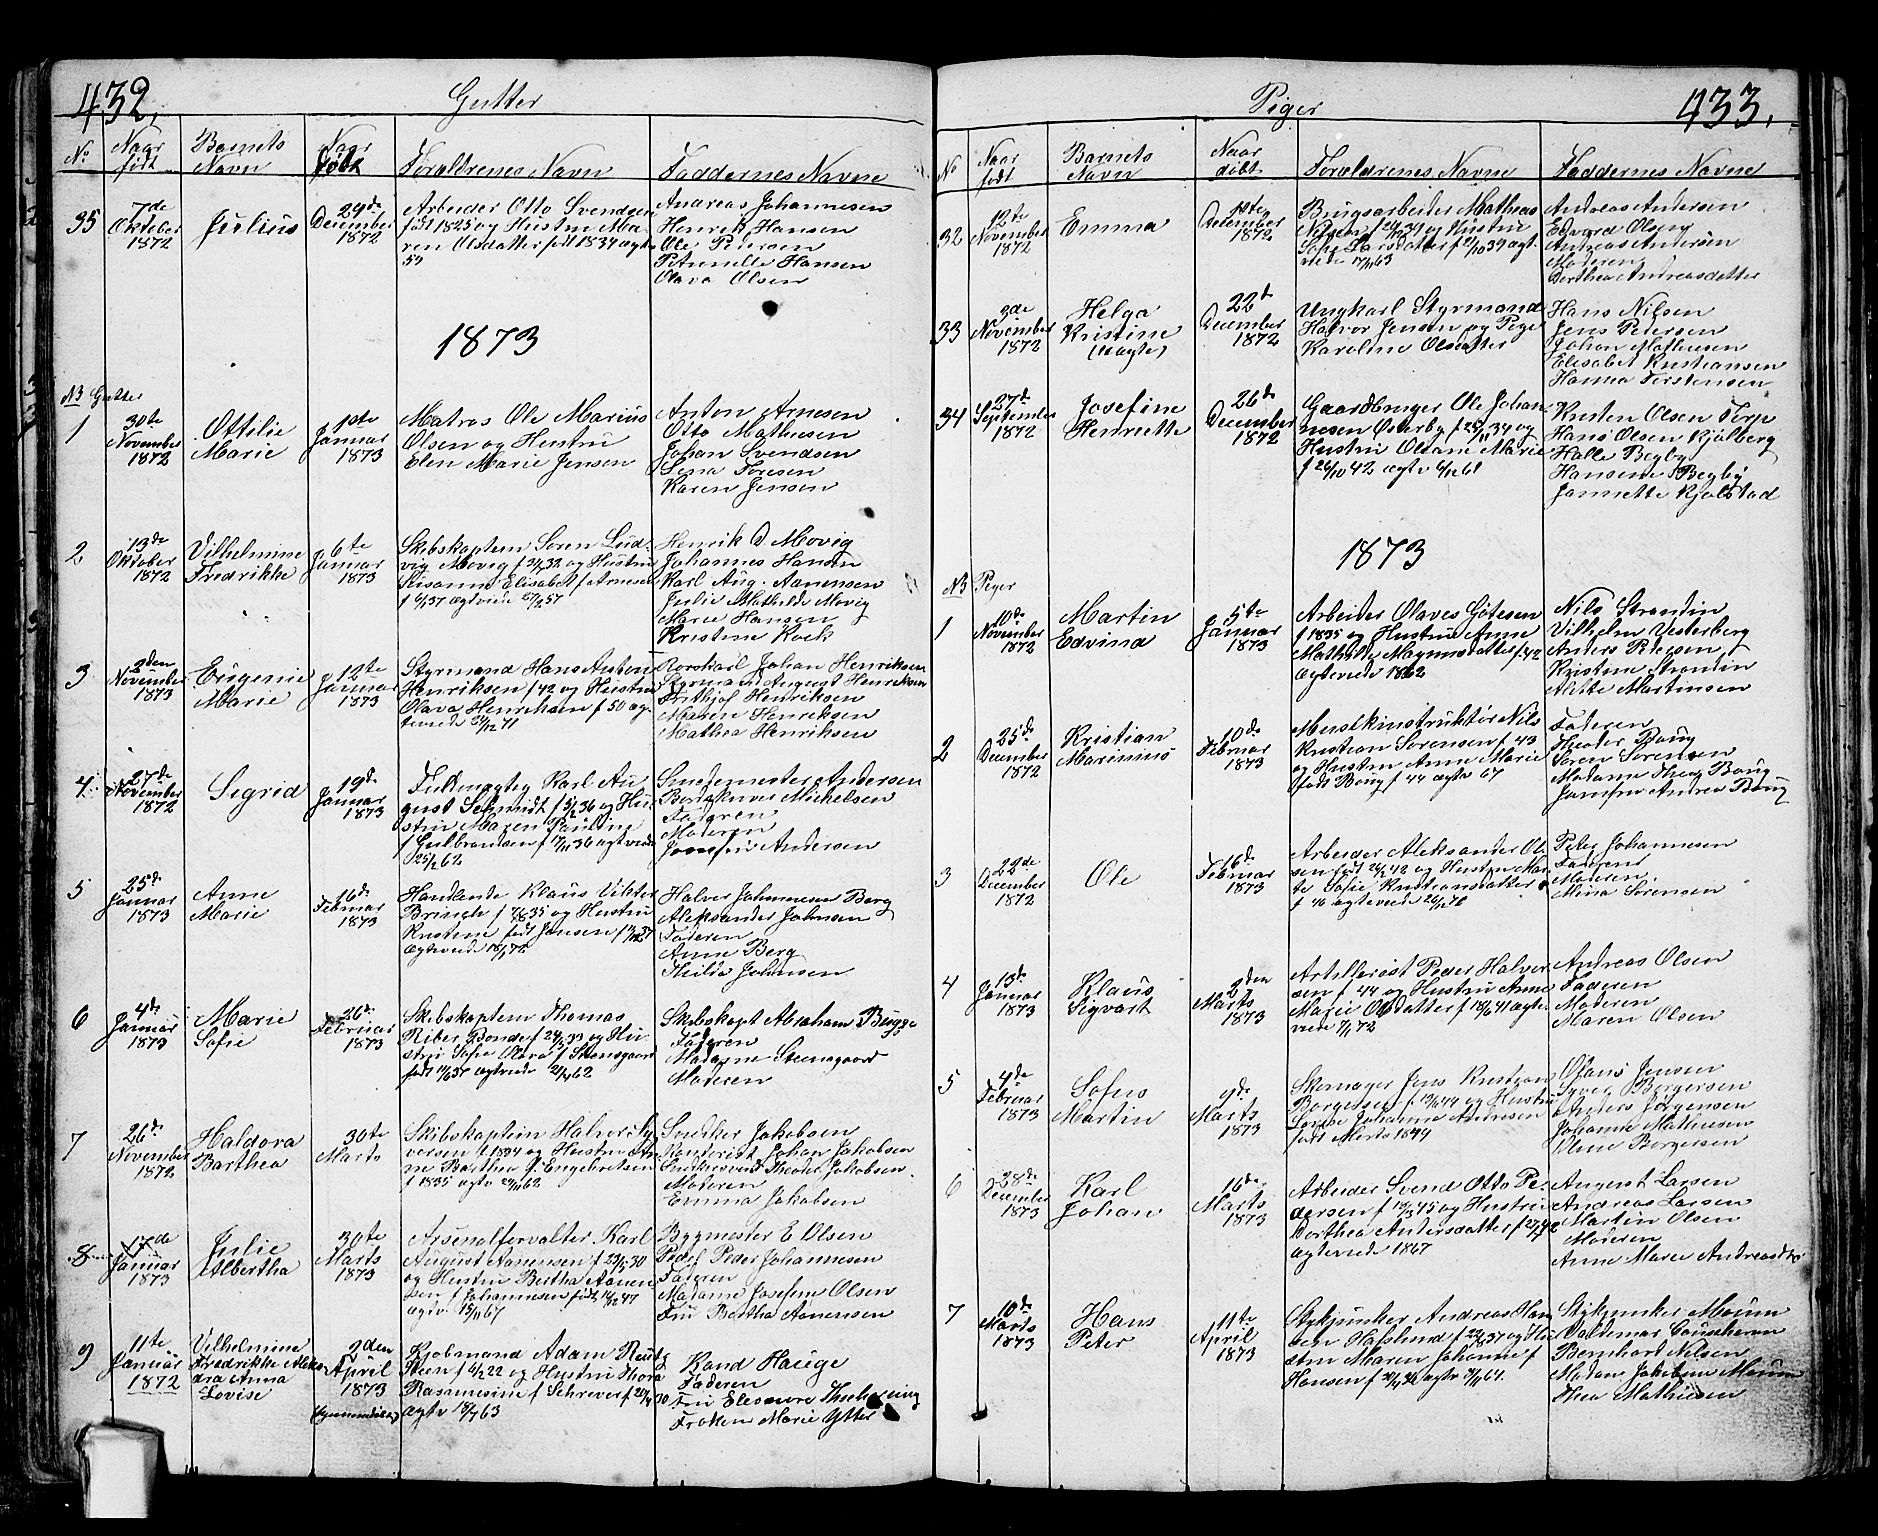 432.
Gutter
No
Naar født
Barnets Navn
Naar Døbt
Forældrenes Navn
Faddernes Navne
35
7de Oktober 1872
Julius
29de December 1872
Arbeider Otto Svendsen
født 1825 og Hustru Ma-
ren Olsdatter født 1834 ægtv
59
Andreas Johannesen
Henrik Hansen
Ole Pedersen
Petrunelle Hansen
Olava Olsen
1873
NB Gutter
1
30te November 1872
Ottilie Marie
1ste Januar 1873
Matros Ole Marius
Olsen og Hustru
Elen Marie Jensen
Anton Arnesen
Otto Mathiesen
Johan Svendsen
Lena Toresen
Karen Jensen
2
13de Oktober 1872
Vilhelmine Fredrikke
6te Januar 1873
Skibskaptein Søren Lud-
vig Movig f 2/7 32 og Hustru
Susanne Elisabet f Arnesen
f 6/1 37 Ægteviede 27/2 57
Henrik D Movig
Johannes Hansen
Karl Aug. Aanensen
Julie Mathilde Movig
Marie Hansen
Kristine Kock
3
2den November 1873
Eugenie Marie
12te Januar 1873
Styrmand Hans Anton
Henriksen f 42 og Hustru
Olava Henriksen f 50 æg-
teviede 26/12 71
Rorskarl Johan Henriksen
Styrmand August Henriksen
Frithjof Henriksen
Maren Henriksen
Mathea Henriksen
4
27de November 1872
Sigrid
19de Januar 1873
Fuldmægtig Karl Au
gust Schmidt f 5/2 36 og Hu-
stru Maren Pauline
f Gulbrandsen f 17/11 36 ægteviede
25/2 62
Smedemester Andersen
Michelsen
Faderen
Moderen
Andersen
5
25de Januar 1873
Anne Marie
16de Februar 1873
Handlende Klaus Viktor
Brinch f 7/8 35 og Hustru
Kristine født Jensen f 37
Ægteviede 18/1 72
Halvor Johannesen Berg
Aleksander Johnsen
Faderen
Anne Berg
Thilda Johnsen
6
4de Januar 1873
Marie Sofie
26de Februar 1873
Skibskaptein Thomas
Riber Bonde f 24/5 33 og Hu-
stru Sofie Olava f Stensgaard
født 14/6 37 ægteviede 2/4 62
Skibskapt Abraham Bugge
Faderen
Madame Steensgaard
Moderen
7
26de November 1872
Haldora Barthea
30te Marts
Skibskaptein Halvor Sy-
versen f 1834 og Hustru An-
ne Barthea f. Engebretsen
f 1835 ægtv 29/11 62
Snedker Jakobsen
Kontorist Johan Jakobsen
Snedkersvend Theodor Jakobsen
Moderen
Emma Jakobsen
8
17de Januar 1873
Julie Albertha
30te Marts 1873
Arsenalforvalter Karl
August Aanensen f 23/5 30
og Hustru Bertha Aanen
sen f Johannesen født 14/12 47
ægtv 15/11 67
Bygmester E Olsen
Pedel Peder Johannesen
Faderen
Madame Josefine Olsen
Fru Bertha Aanensen
9
11te Januar 1872
Vilhelmine Fredrikke Alexan
dra Anna Lovise
2den April 1873
Kjøbmand Adam Reutz
Steen f 6/12 22 og Hustru Thora
Rasmusine f Schrever f 20/4 30
ægtv 18/7 63
Kand Hauge
Faderen
Fru Eleonore
Frøken Marie Ytter
433.
Piger
No
Naar født
Barnets Navn
Naar døbt
Forældrenes Navne
Faddernes Navne
32
12te November 1872
Emma
18te December 1872
Brugsarbeider Mathias
Nilsen f 24/12 39 og Hustru
Sofie Larsdatter f 2/10 39 ægt-
viede 17/11 63
Andreas Andersen
Edvard Olsen
Andreas Andersen
Moderen
Berthea Andreasdatter
33
3de November 1872
Helga Kristine (uægte)
22de December 1872
Ungkarl Styrmand
Halvor Jensen og Pige
Karoline Olsdatter
Hans Nilsen
Jens Pedersen
Johan Mathiesen
Elisabet Kristiansen
Hanna Torstensen
34
27de September 1872
Josefine Henriette
26de December 1872
Gaardbruger Ole Johan-
nesen Østerby f 25/11 34 og
Hustru Oleane Marie
f 26/10 42 ægtv 6/12 61
Kristen Olsen Torp
Hans Olsen Kjølberg
Halle Begby
Hansine Begby
Jannette Kjølstad
1873
NB Piger
1
10de November 1872
Martin Edvind
5te Januar 1873
Arbeider Olaves Gotesen
f 1835 og Hustru Anne
Mathilde Magnusdatter f 42
Ægteviede 1862
Nils Strandin
Vilhelm Vesterberg
Anders Petersen
Kristine Strandin
Mette Martinsen
2
25de December 1872
Kristian Marinius
10de Februar 1873
Musikinstruktør Nils
Kristian Sørensen f 43
og Hustru Anne Marie
født Boug f 44 ægtv 67
Faderen
Theodor Boug
Søren Sørensen
Madame Thea Boug
Jomfru Andrea Boug
3
22de December 1872
Ole
16de Februar 1873
Arbeider Aleksander Ol-
sen født 26/2 42 og Hustru Mar-
te Sofie Kristiansdatter
f 46 ægteviede 26/12 72
Peter Johannesen
Faderen
Moderen
Mina Sørensen
4
15de Januar 1873
Klaus Sigvart
2den Marts 1873
Artillerist Peder Halvor-
sen f 44 og Hustru Anne
Marie Olsdatter f 18/6 41 ægte-
viede 7/1 72
Andreas Olsen
Faderen
Moderen
Maren Olsen
5
4de Februar 1873
Sofus Martin
9de Marts 1873
Skomager Jens Kristian
Borgersen f. 19/6 44 og Hustru
Johanne Andresen
født Marts 1849
Olaus Jensen
Syver Borgersen
Anders Jørgensen
Johanne Mathiesen
Oline Borgersen
6
28de December 1873
Karl Johan
16de Marts 1873
Arbeider Svend Otto Pe-
dersen f 19/3 45 og Hustru
Dorthea Andersdatter f 27/9 42
ægteviede 1867
August Larsen
Andreas Larsen
Martin Olsen
Moderen
Anne Marie Andreasdtr
7
10de Marts 1873
Hans Peter
11te April 1873
Stykjunker Andreas Han
sen Hafslund f 22/8 37 og Hu-
stru Maren Johanne f
Hansen f 21/4 36 ægtv 3/11 61
Stykjunker Moum
Valdemar
Bernhard Nilsen
Madam Jakobine Moum
Thea Mathiesen